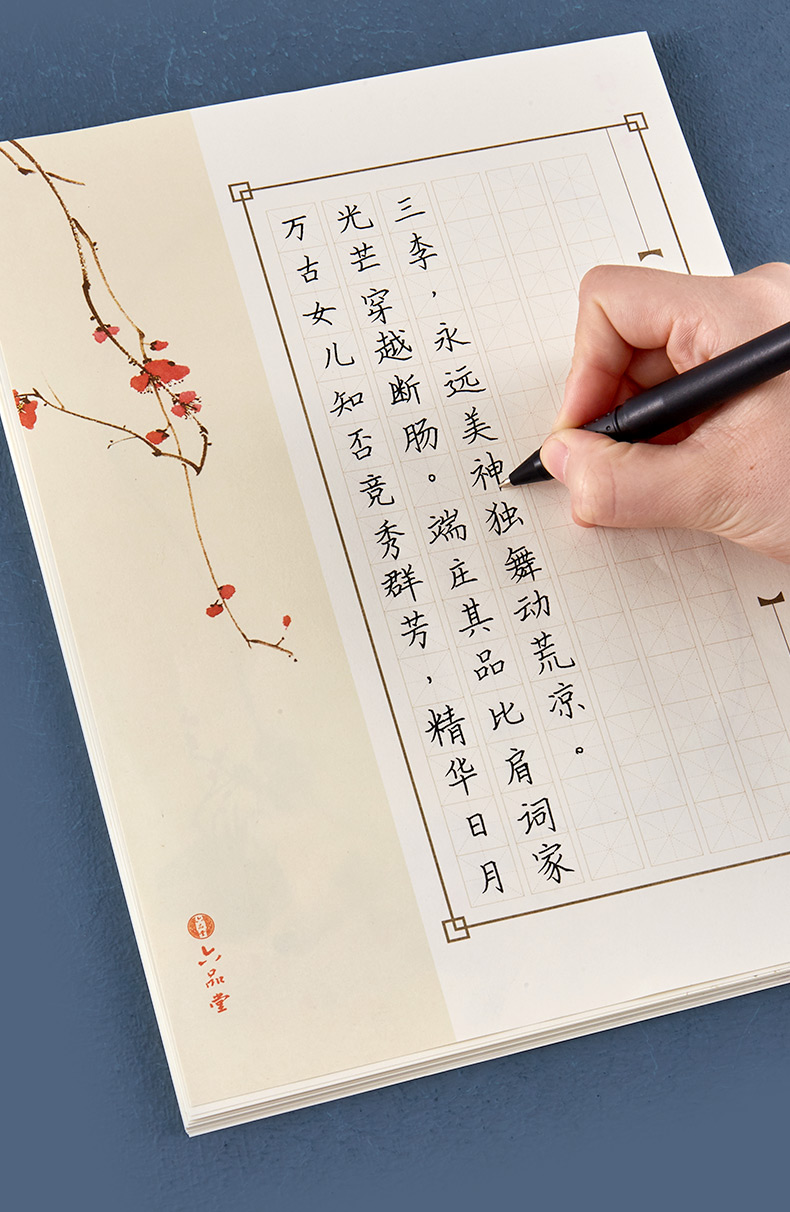 万古女儿知否竞秀群芳，精华日月
光芒穿越断肠。端庄其品比肩词家
三李，永远美神独舞动荒凉。
六品堂